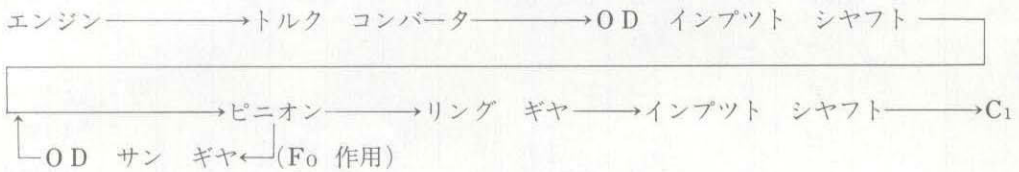 エンジン→トルク コンバータ→OD インプツト シヤフト
→ピニオン→リング ギヤ→インプツト シヤフト→C₁
OD サン ギヤ←(F₀ 作用)